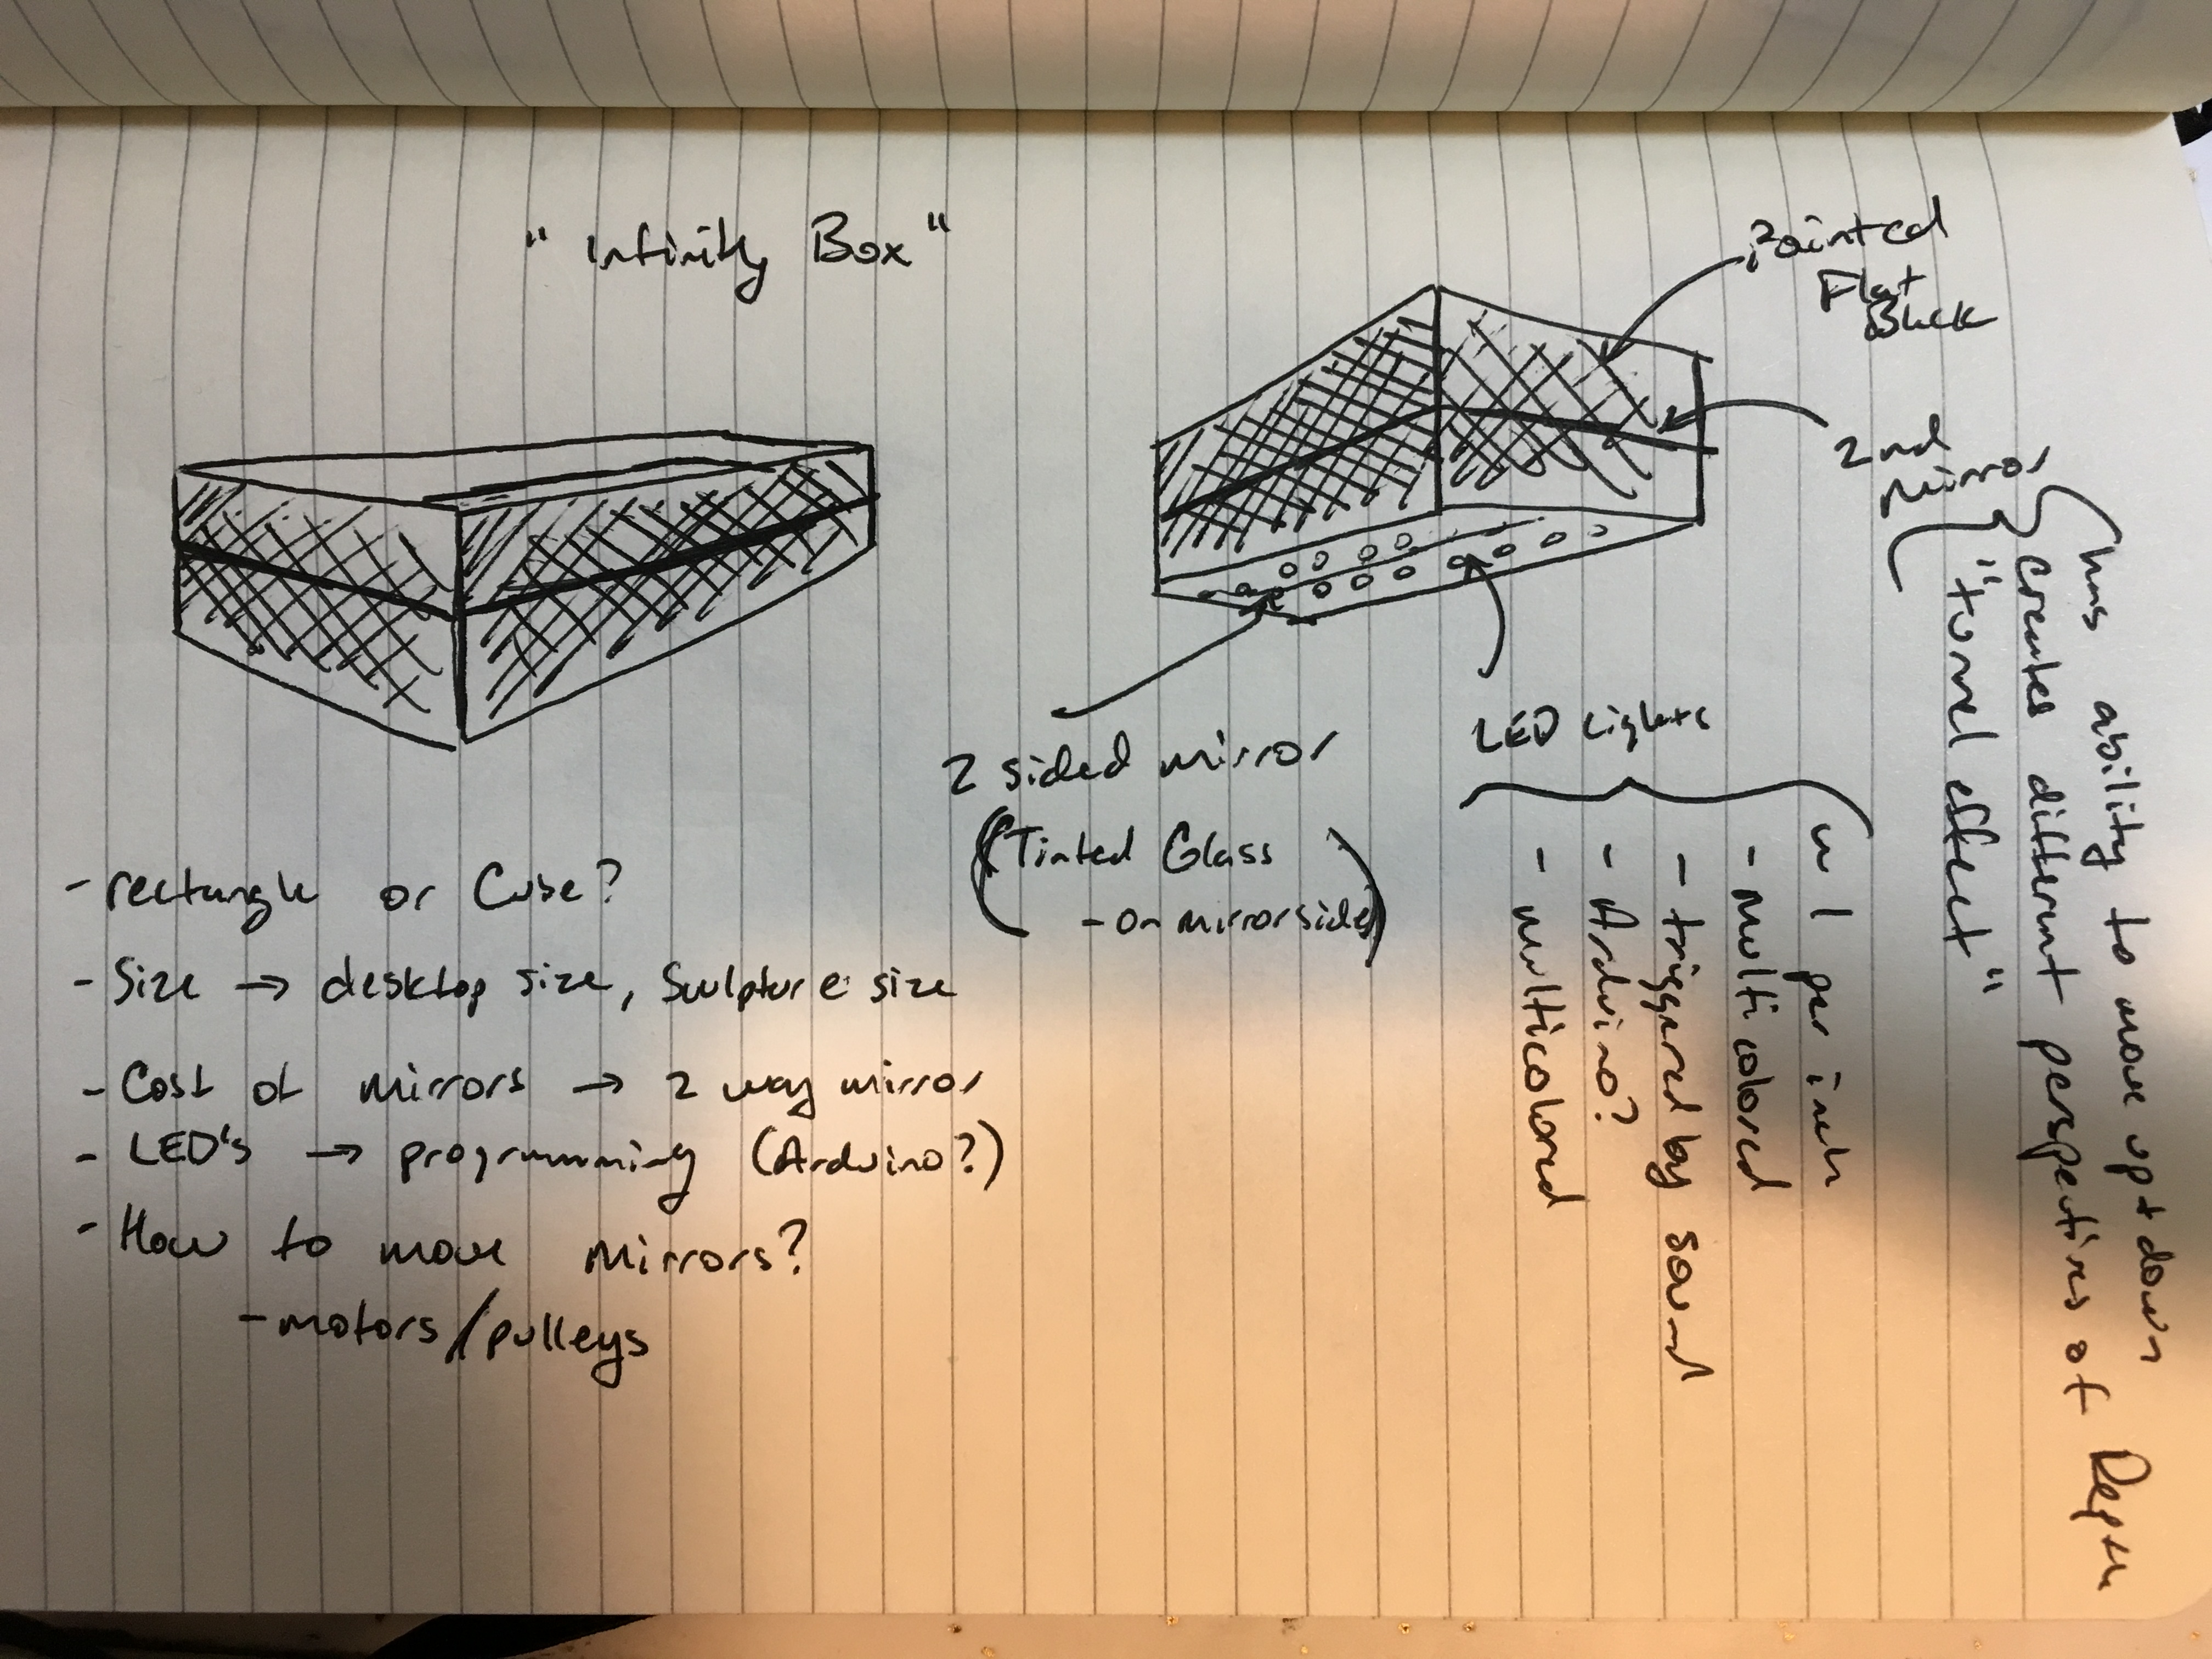 " Infinity Box "
Painted
Flat
Black
2nd
Mirror
has ability to move up + down
creates different perspectives of Depth
"tunnel effect"
LED Lights
~ 1 per inch
- Multi colored
- triggered by sound
- Arduino?
- multicolored
2 sided mirror
(Tinted Glass
- on mirror side)
- rectangle or Cube?
- Size → desktop size, Sculpture size
- Cost of mirrors → 2 way mirror
- LED's → programming (Arduino?)
- How to move mirrors?
- motors/pulleys